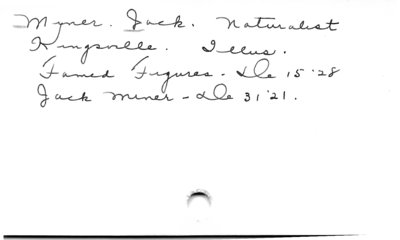 Myner. Jack. Naturalist
Kingsville. Illus.
Famed Figures - De 15 '28
Jack Miner - De 31 '21.